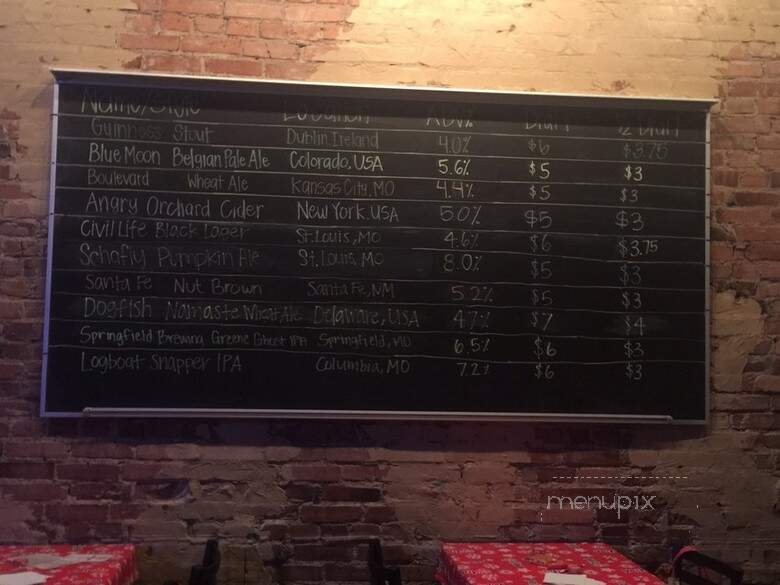 Name/Style Location ABV% Draft ½ Draft
Guinness Stout Dublin Ireland 4.0% $6 $3.75
Blue Moon Belgian Pale Ale Colorado, USA 5.6% $5 $3
Boulevard Wheat Ale Kansas City, MO 4.4% $5 $3
Angry Orchard Cider New York, USA 5.0% $5 $3
Civil Life Black Lager St. Louis, MO 4.6% $6 $3.75
Schafly Pumpkin Ale St. Louis, MO 8.0% $5 $3
Santa Fe Nut Brown Santa Fe, NM 5.2% $5 $3
Dogfish Namaste Wheat Ale Delaware, USA 4.7% $7 $4
Springfield Brewing Greene Ghost IPA Springfield, MO 6.5% $6 $3
Logboat Snapper IPA Columbia, MO 7.2% $6 $3
menupix